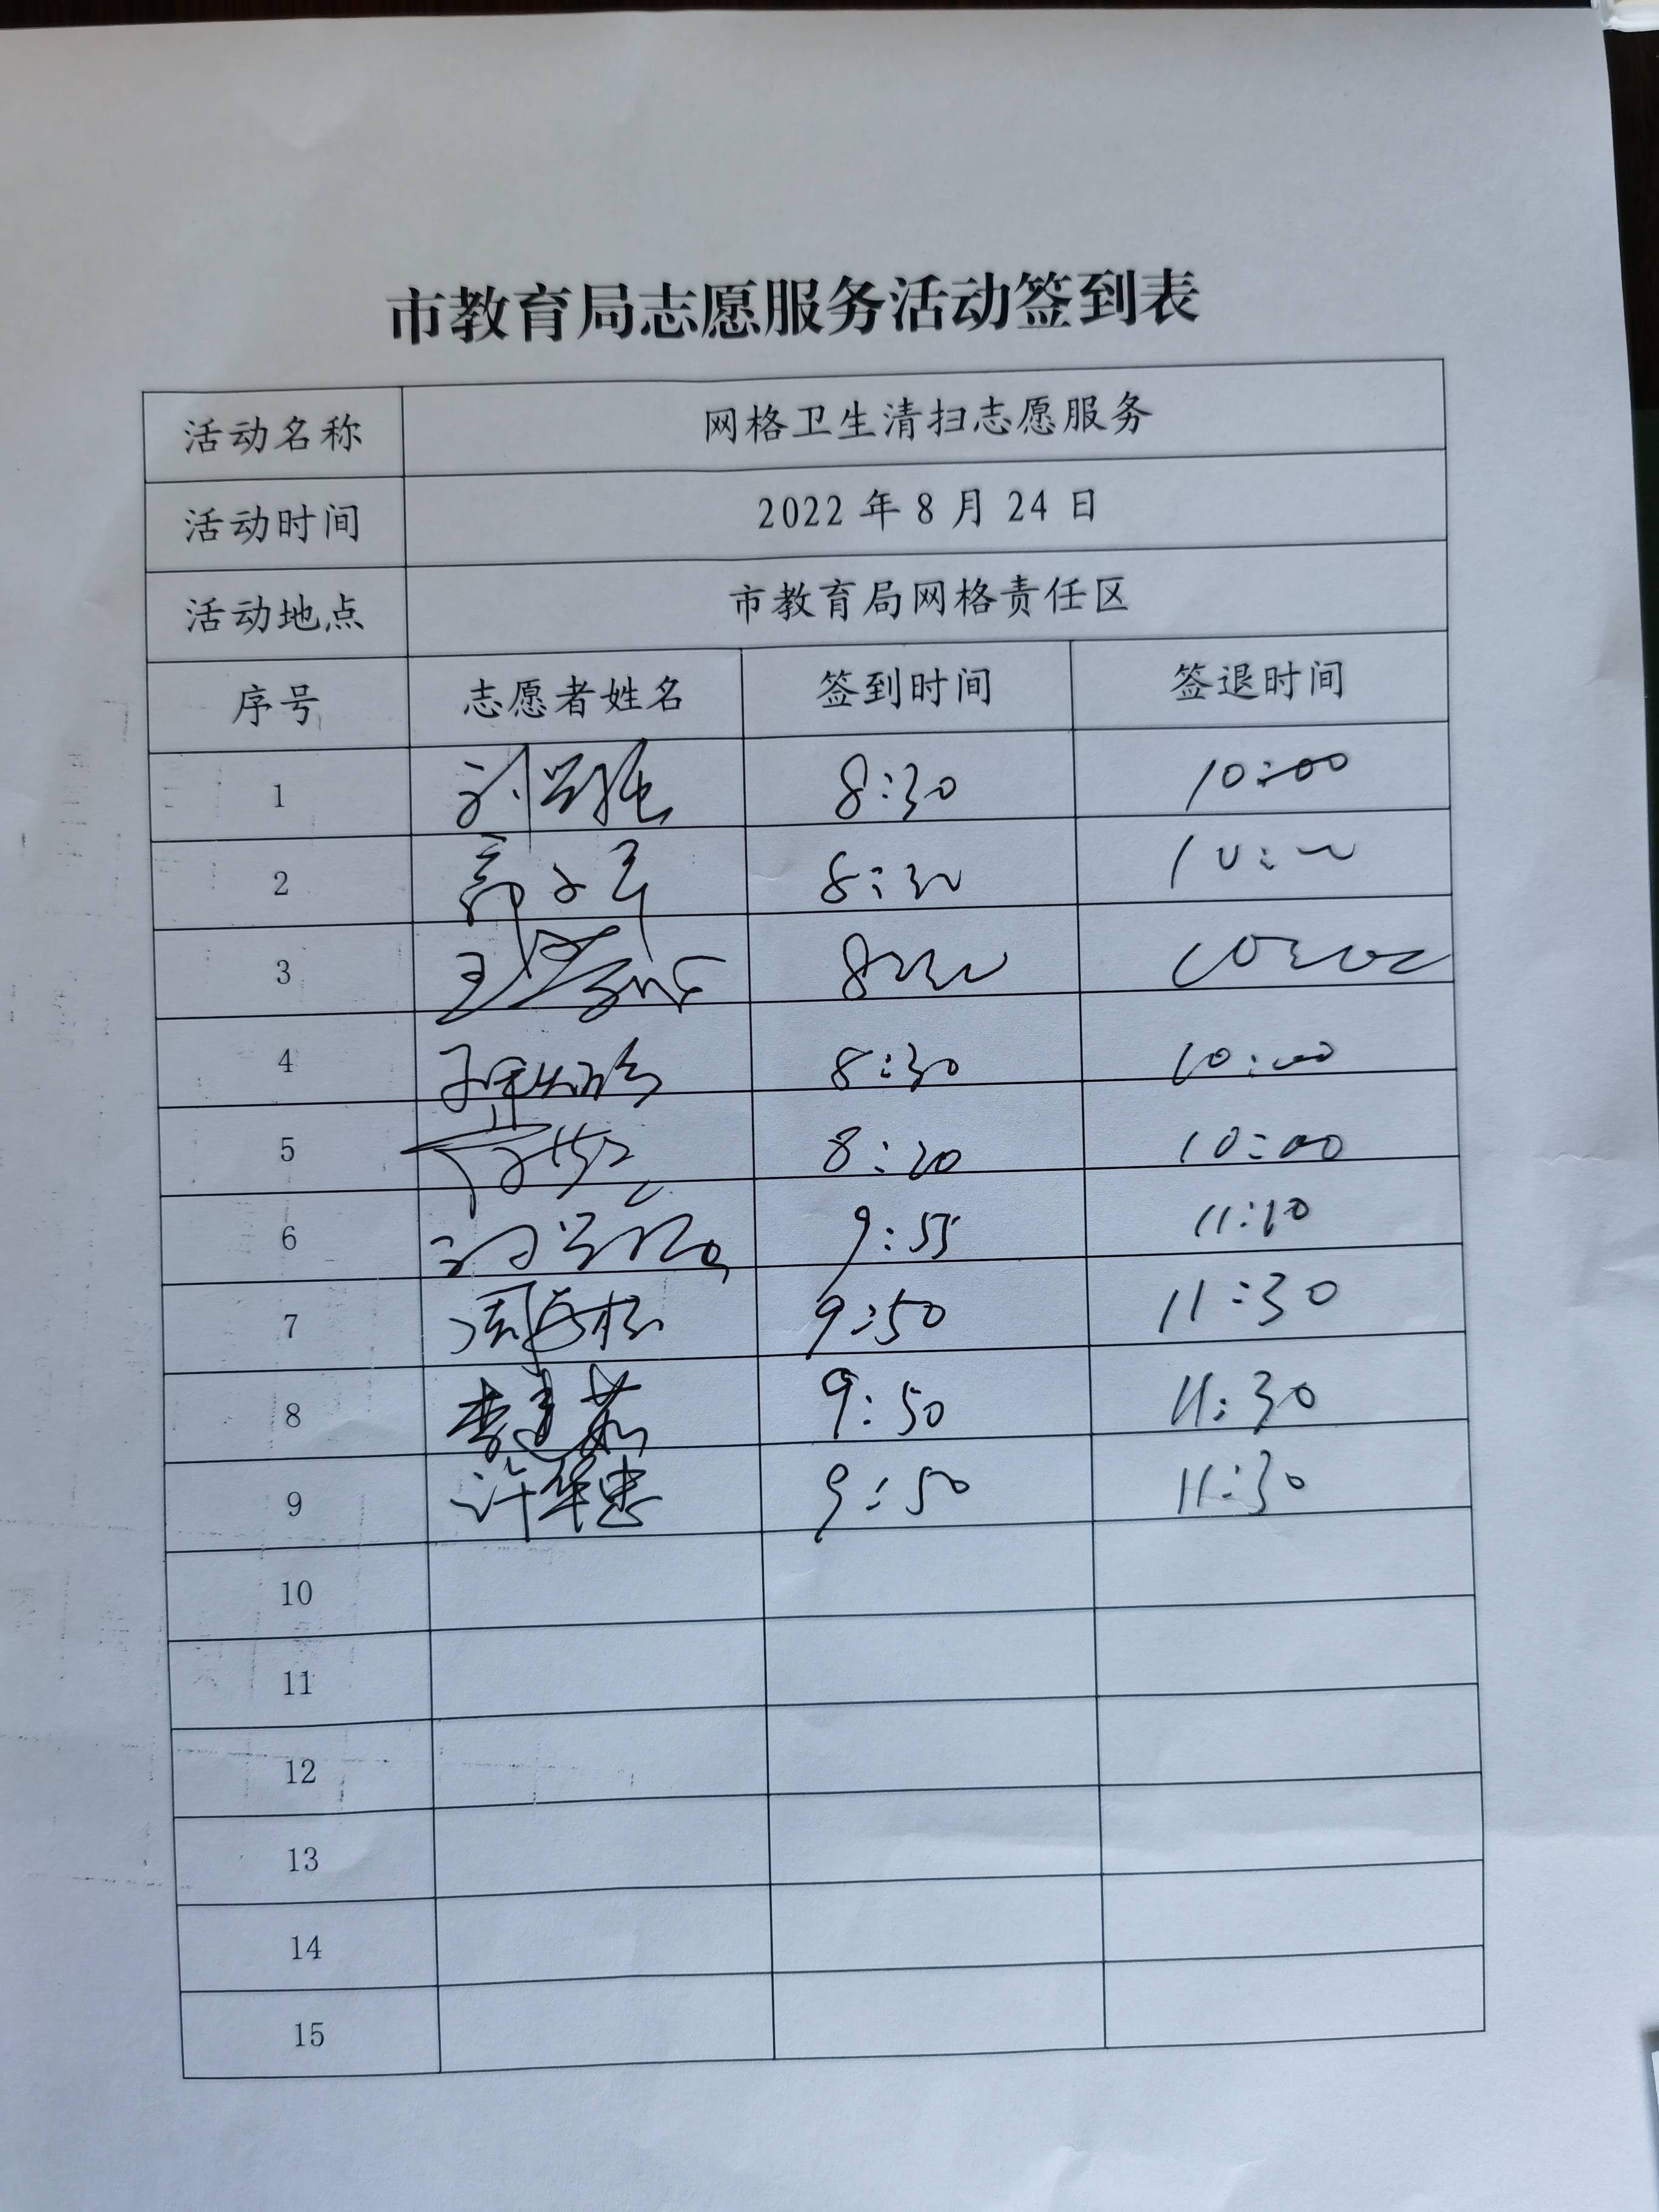 市教育局志愿服务活动签到表
活动名称 网格卫生清扫志愿服务
活动时间 2022 年 8 月 24 日
活动地点 市教育局网格责任区
序号 志愿者姓名 签到时间 签退时间
1 8:30 10:00
2 8:30 10:00
3 王 8:30 10:00
4 8:30 10:00
5 8:20 10:00
6 9:55 11:10
7 9:50 11:30
8 李建茹 9:50 11:30
9 许华忠 9:50 11:30
10
11
12
13
14
15